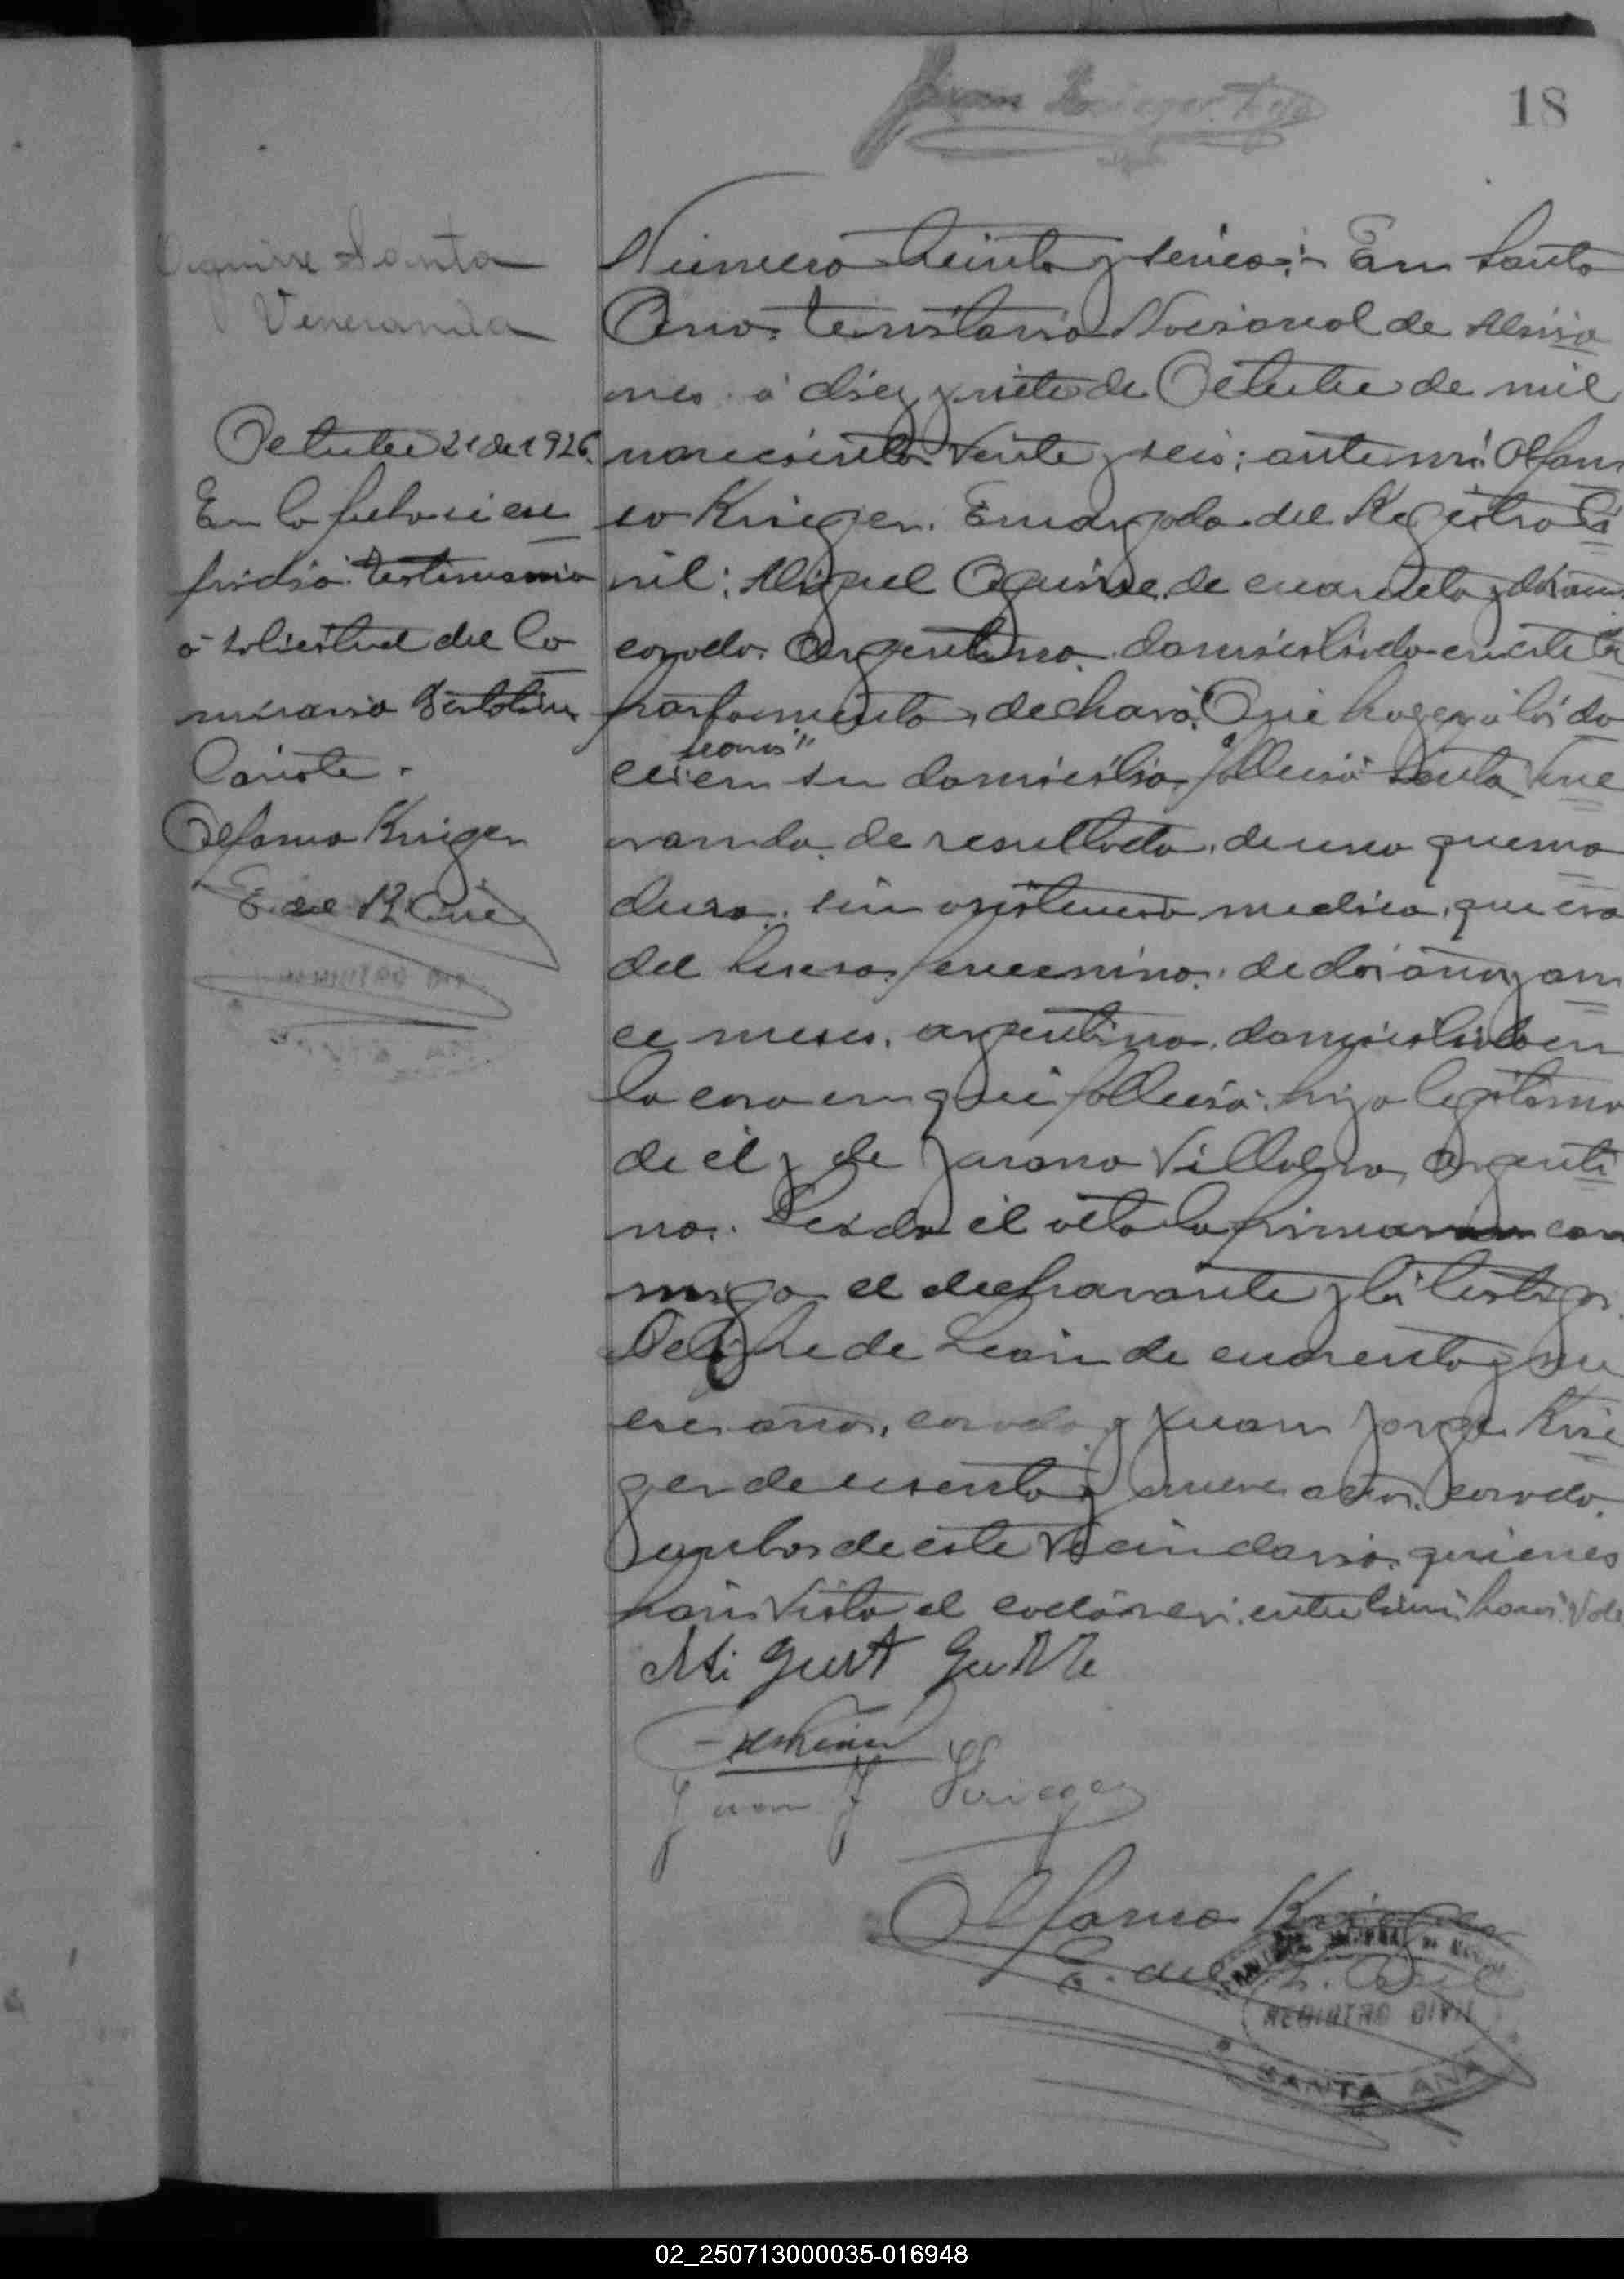 18
Aguirre Santa
Veneranda
Octubre 21 de 1926.
En la fecha se ex
pidió testimonio
á solicitud del Co
misario Bartolome
Alfonso Krieger
E. del R. Civil
Numero treinta y cinco: En Santa
Ana, territorio Nacional de Misio
nes á diez y siete de Octubre de mil
novecientos veinte y seis; ante mi Alfon
so Krieger, Encargado del Registro Ci
vil; Miguel Aguirre, de cuarenta y dos años
casado, Argentino, domiciliado en este de
partamento, declaró: Que hoy a las do
ce en su domicilio falleció Santa Vene
randa, de resultado de una quema
dura, sin asistencia medica, que era
del sexo femenino, de dos años y on
ce meses, argentina, domiciliada en
la casa en que falleció, hija legitima
de él y de Juana Villalva, argenti
na. Leida el acta la firmaron con
migo el declarante y los testigos
de Leon de cuarenta y nu
eve años, casado y Juan Jorge Krie
ger de sesenta y nueve años, casado,
ambos de este vecindario, quienes
han visto el cadáver.
Juan J Krieger
Alfonso Krieger
E. del R. Civil
REGISTRO CIVIL
SANTA ANA
02_250713000035-016948